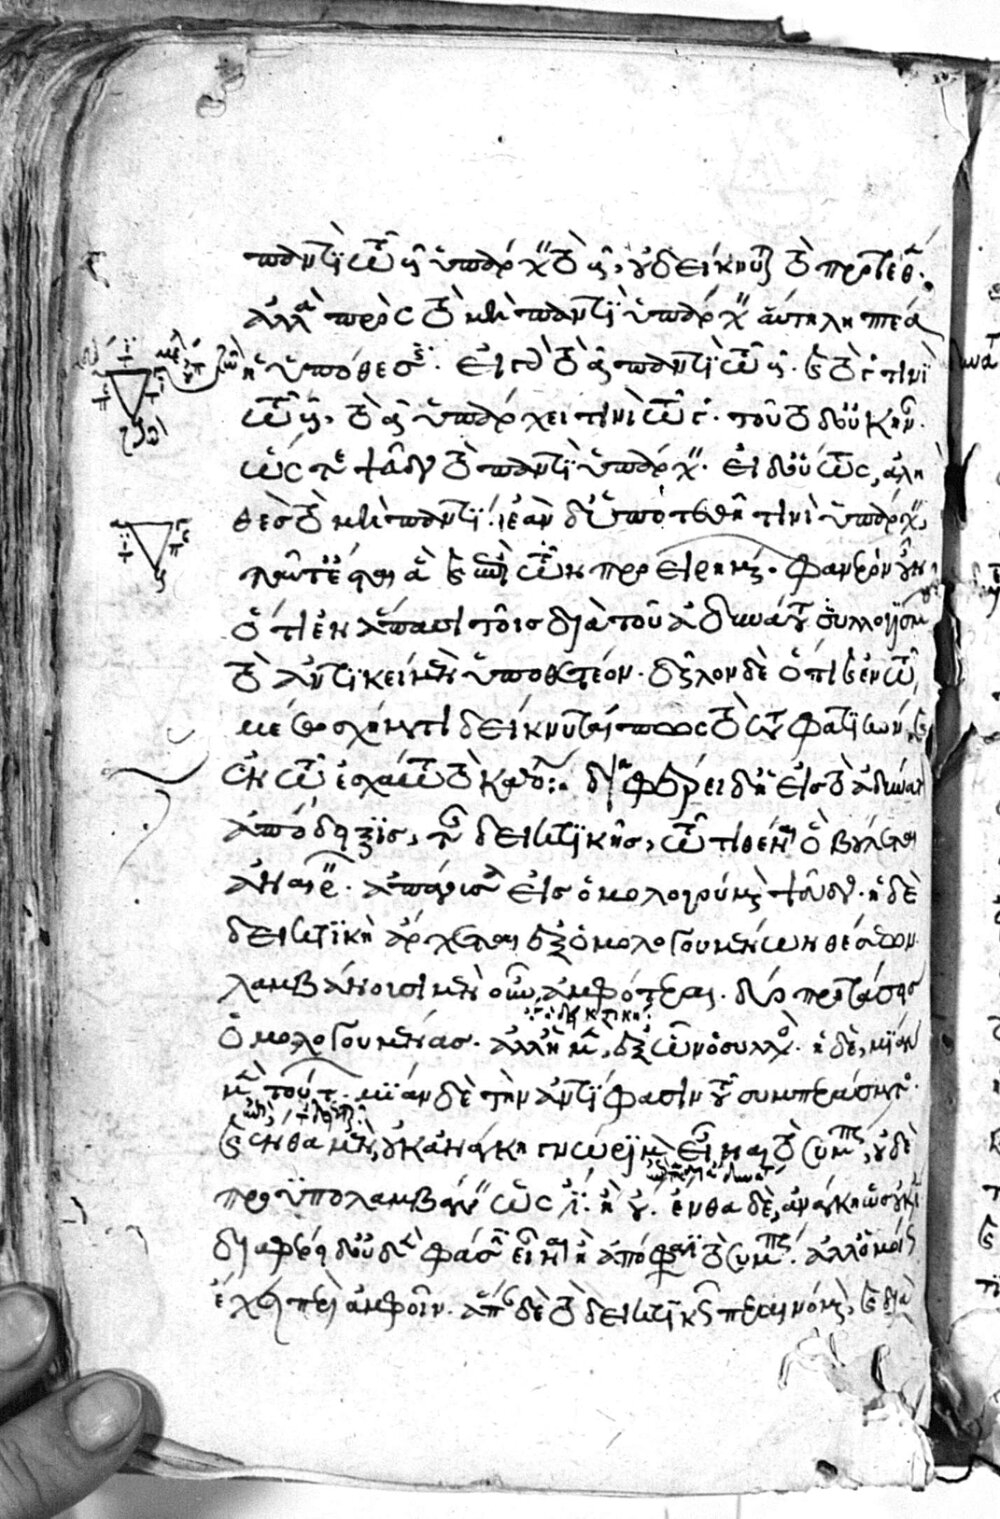 παντὶ τῷ γ ὑπάρχειν τὸ α, οὐ δείκνυται τὸ προτεθέν.
ἀλλὰ πρὸς τὸ μὴ παντὶ ὑπάρχειν αὕτη ληπτέα
ἡ ὑπόθεσις. εἰ γὰρ τὸ α παντὶ τῷ β. καὶ τὸ γ τινὶ
τῷ β, τὸ α ὑπάρχει τινὶ τῷ γ. τοῦτο δ' οὐκ ἦν.
ὥστε ψεῦδος τὸ παντὶ ὑπάρχειν. εἰ δ' οὕτως, ἀλη
θὲς τὸ μὴ παντί. ἐὰν δ' ὑποτεθῆ τινὶ ὑπάρχειν,
ταὐτ' ἔσται ἃ καὶ ἐπὶ τῶν προειρημένων. φανερὸν οὖν
ὅτι ἐν ἅπασι τοῖς διὰ τοῦ ἀδυνάτου συλλογισμοῖς
τὸ ἀντικείμενον ὑποθετέον. δῆλον δὲ ὅτι καὶ ἐν τῷ
μέσῳ σχήματι δείκνυταί πως τὸ καταφατικόν, καὶ
ἐν τῷ ἐσχάτῳ τὸ καθόλου. διαφέρει δ' ἡ εἰς τὸ ἀδύνατον
ἀπόδειξις, τῆς δεικτικῆς, τῷ τιθέναι ὃ βούλεται
ἀναιρεῖν. ἀπάγουσα εἰς ὁμολογούμενον ψεῦδος. ἡ δὲ
δεικτικὴ ἄρχεται ἐξ ὁμολογουμένων θέσεων.
λαμβάνουσι μὲν οὖν ἀμφότεραι δύο προτάσεις
ὁμολογουμένας. ἀλλ' ἡ μὲν, ἐξ ὧν ὁ συλλογισμός. ἡ δὲ, μίαν
μὲν τούτων. μίαν δὲ τὴν ἀντίφασιν τοῦ συμπεράσματος.
καὶ ἔνθα μὲν, οὐκ ἀνάγκη γνώριμον εἶναι τὸ συμπέρασμα, οὐδὲ
προϋπολαμβάνειν ὡς ἔστιν ἢ οὔ. ἔνθα δὲ, ἀνάγκη ὡς οὐκ ἔστι
διαφέρει δ' οὐδὲν φάσιν εἶναι ἢ ἀπόφασιν τὸ συμπέρασμα. ἀλλ' ὁμοίως
ἔχει περὶ ἀμφοῖν. ἅπαν δὲ τὸ δεικτικῶς περαινόμενον, καὶ διὰ